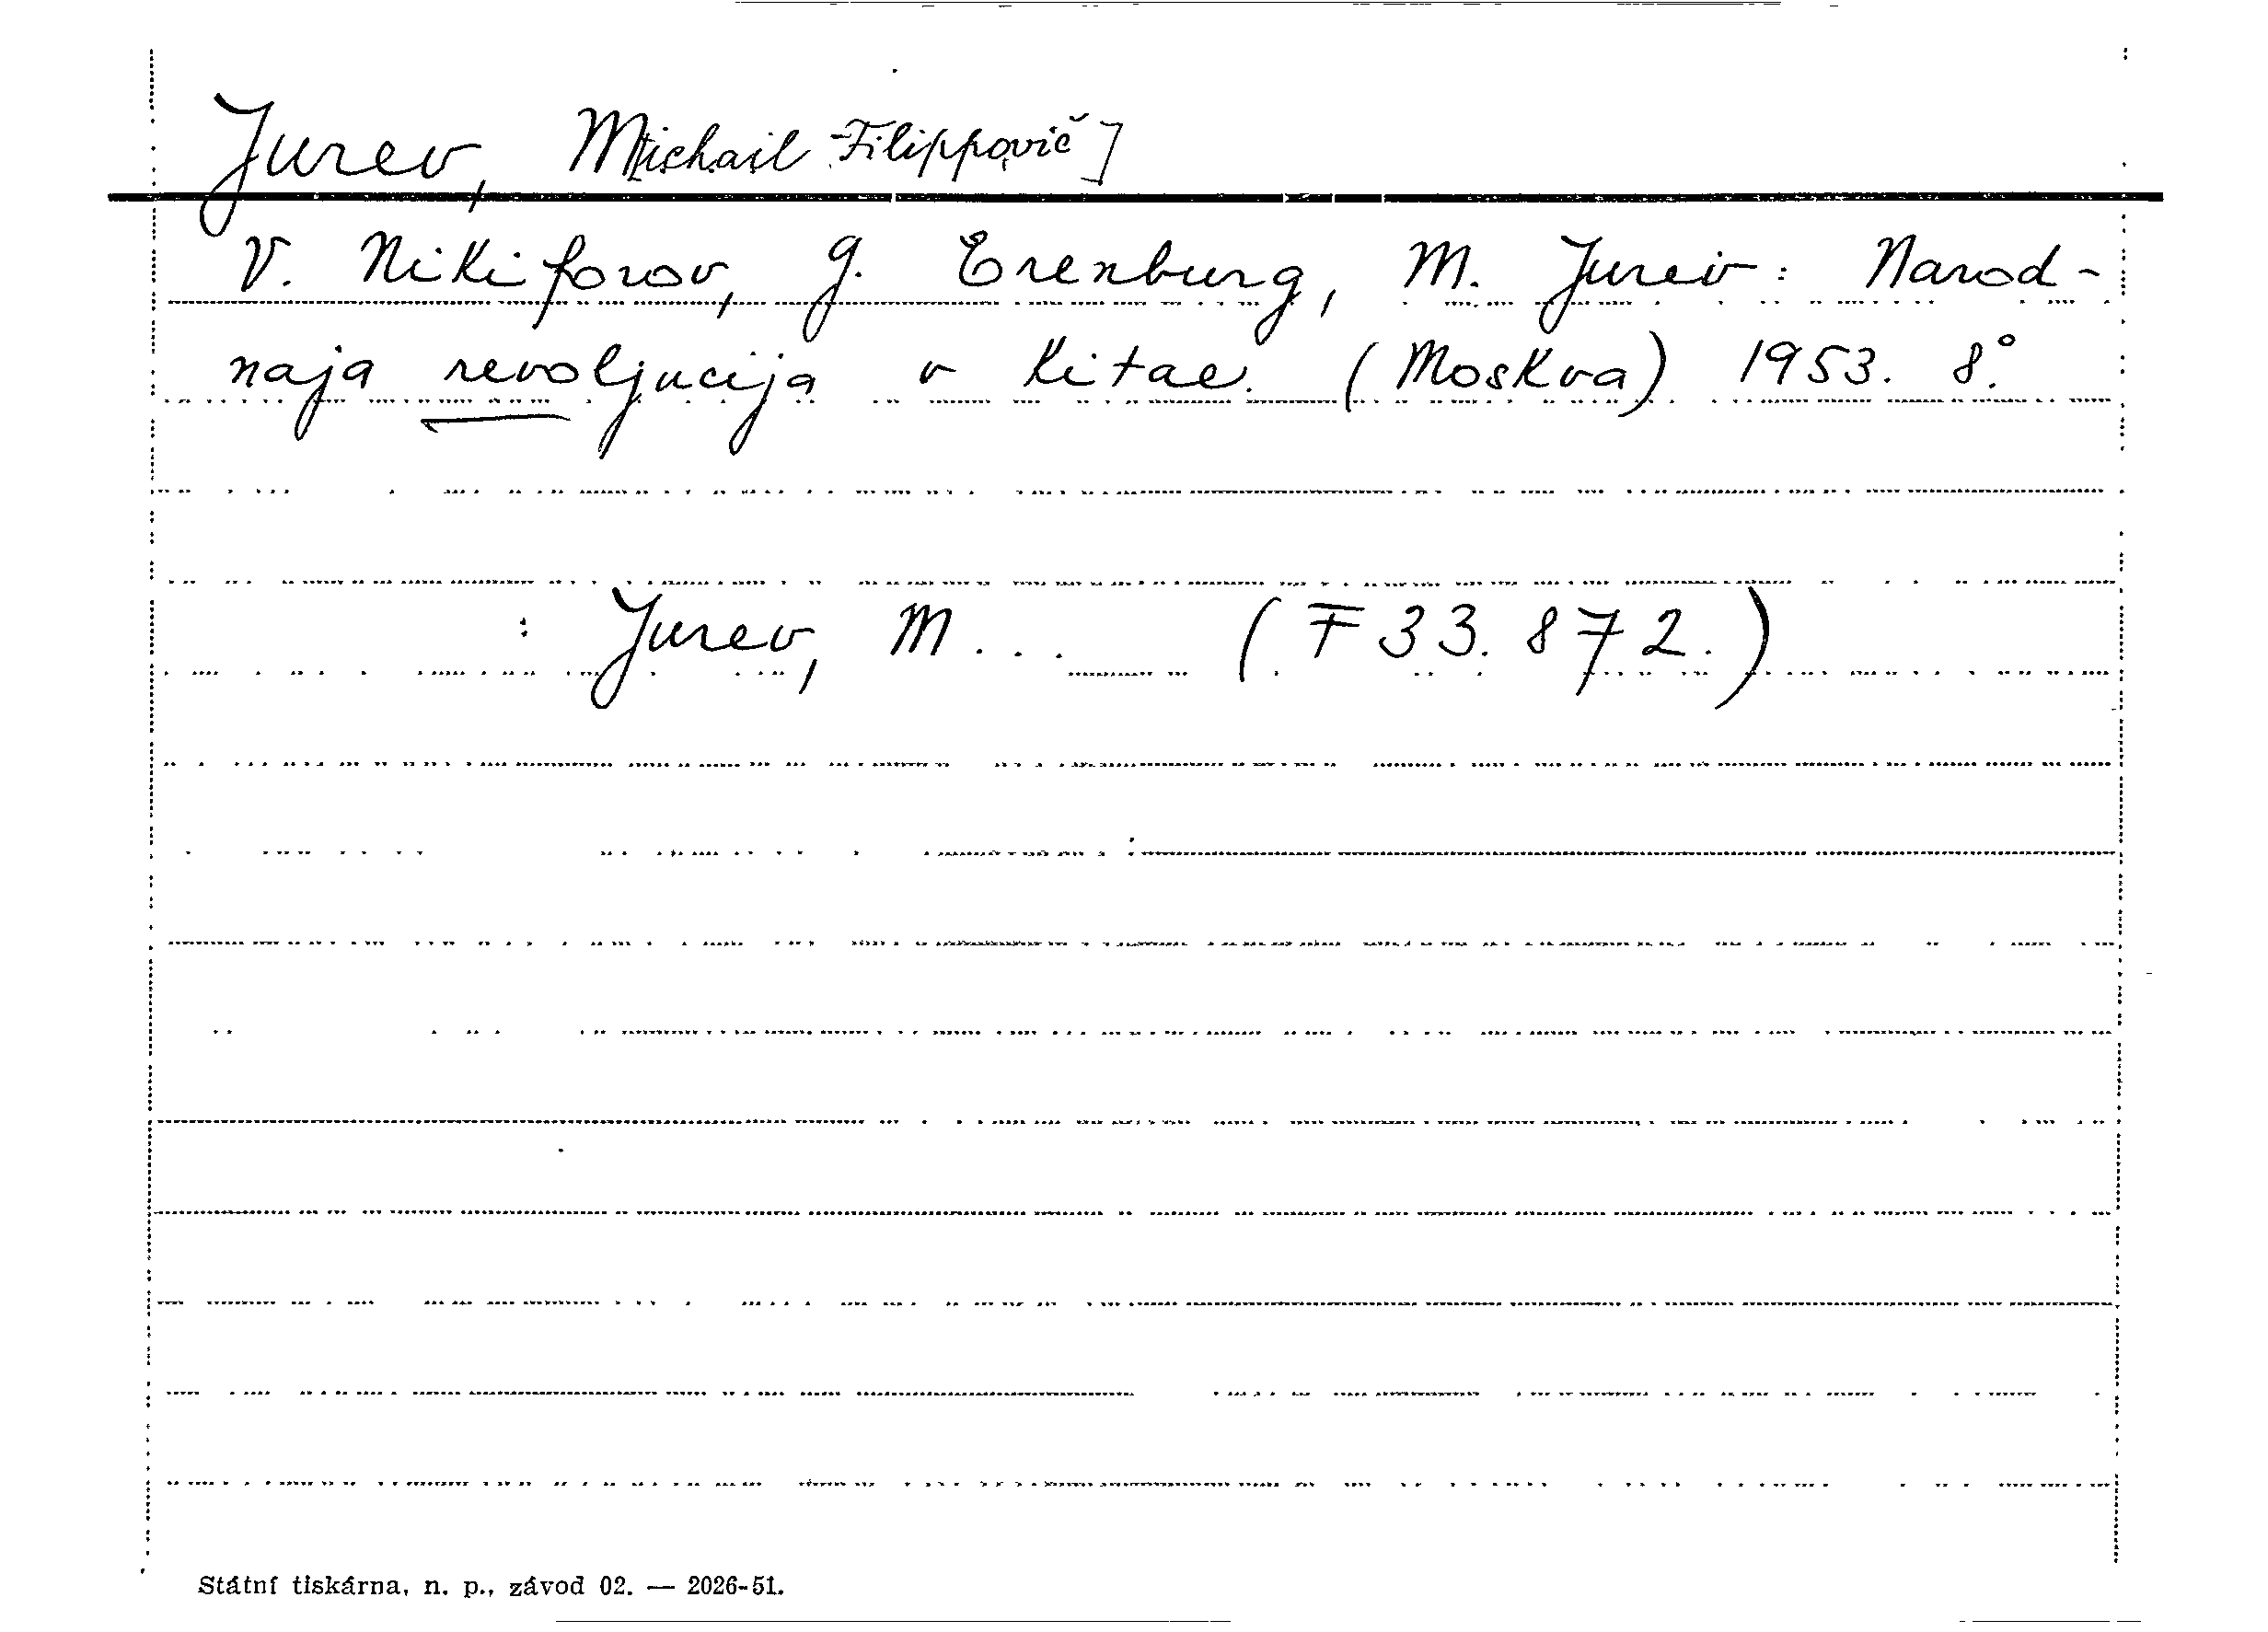 Jurev, M[ichail Filippovič]
V. Nikiforov, G. Erenburg, M. Jurev: Narod-
naja revoljucija v Kitae. (Moskva) 1953. 8°.
: Jurev, M... (F 33.872.)
Státní tiskárna, n. p., závod 02. — 2026-51.